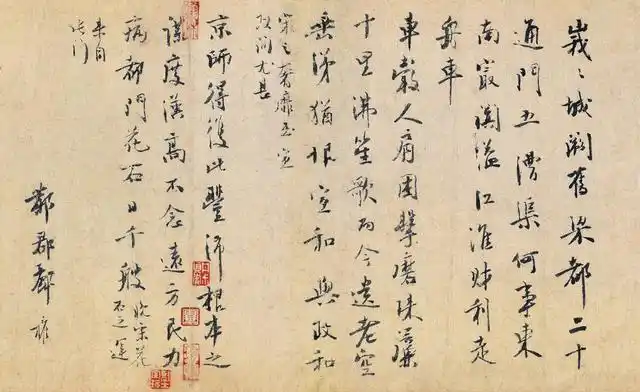 峩々城闕舊梁都二十
通門五漕渠何事東
南最闐溢江淮財利走
舟車
車轂人肩困擊磨珠簾
十里沸笙歌而今遺老空
垂涕猶恨宣和與政和
宋之奢靡至宣
政間尤甚
京師得復比豐沛根本之
謀度漢高不念遠方民力
病都門花石日千艘
晚宋花
石之運
来自
此門
鄴郡酈權